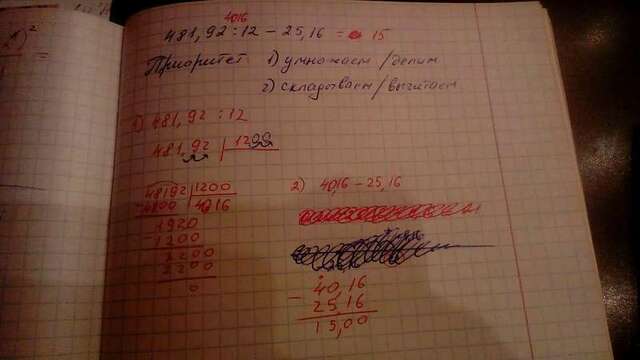 40,16
481,92 : 12 - 25,16 = 15
Приоритет 1) умножаем / делим
2) складываем / вычитаем
1) 481,92 : 12
481,92 | 1200
48192 | 1200
4800 | 4016
1920
1200
2) 40,16 - 25,16
0
- 40,16
25,16
15,00